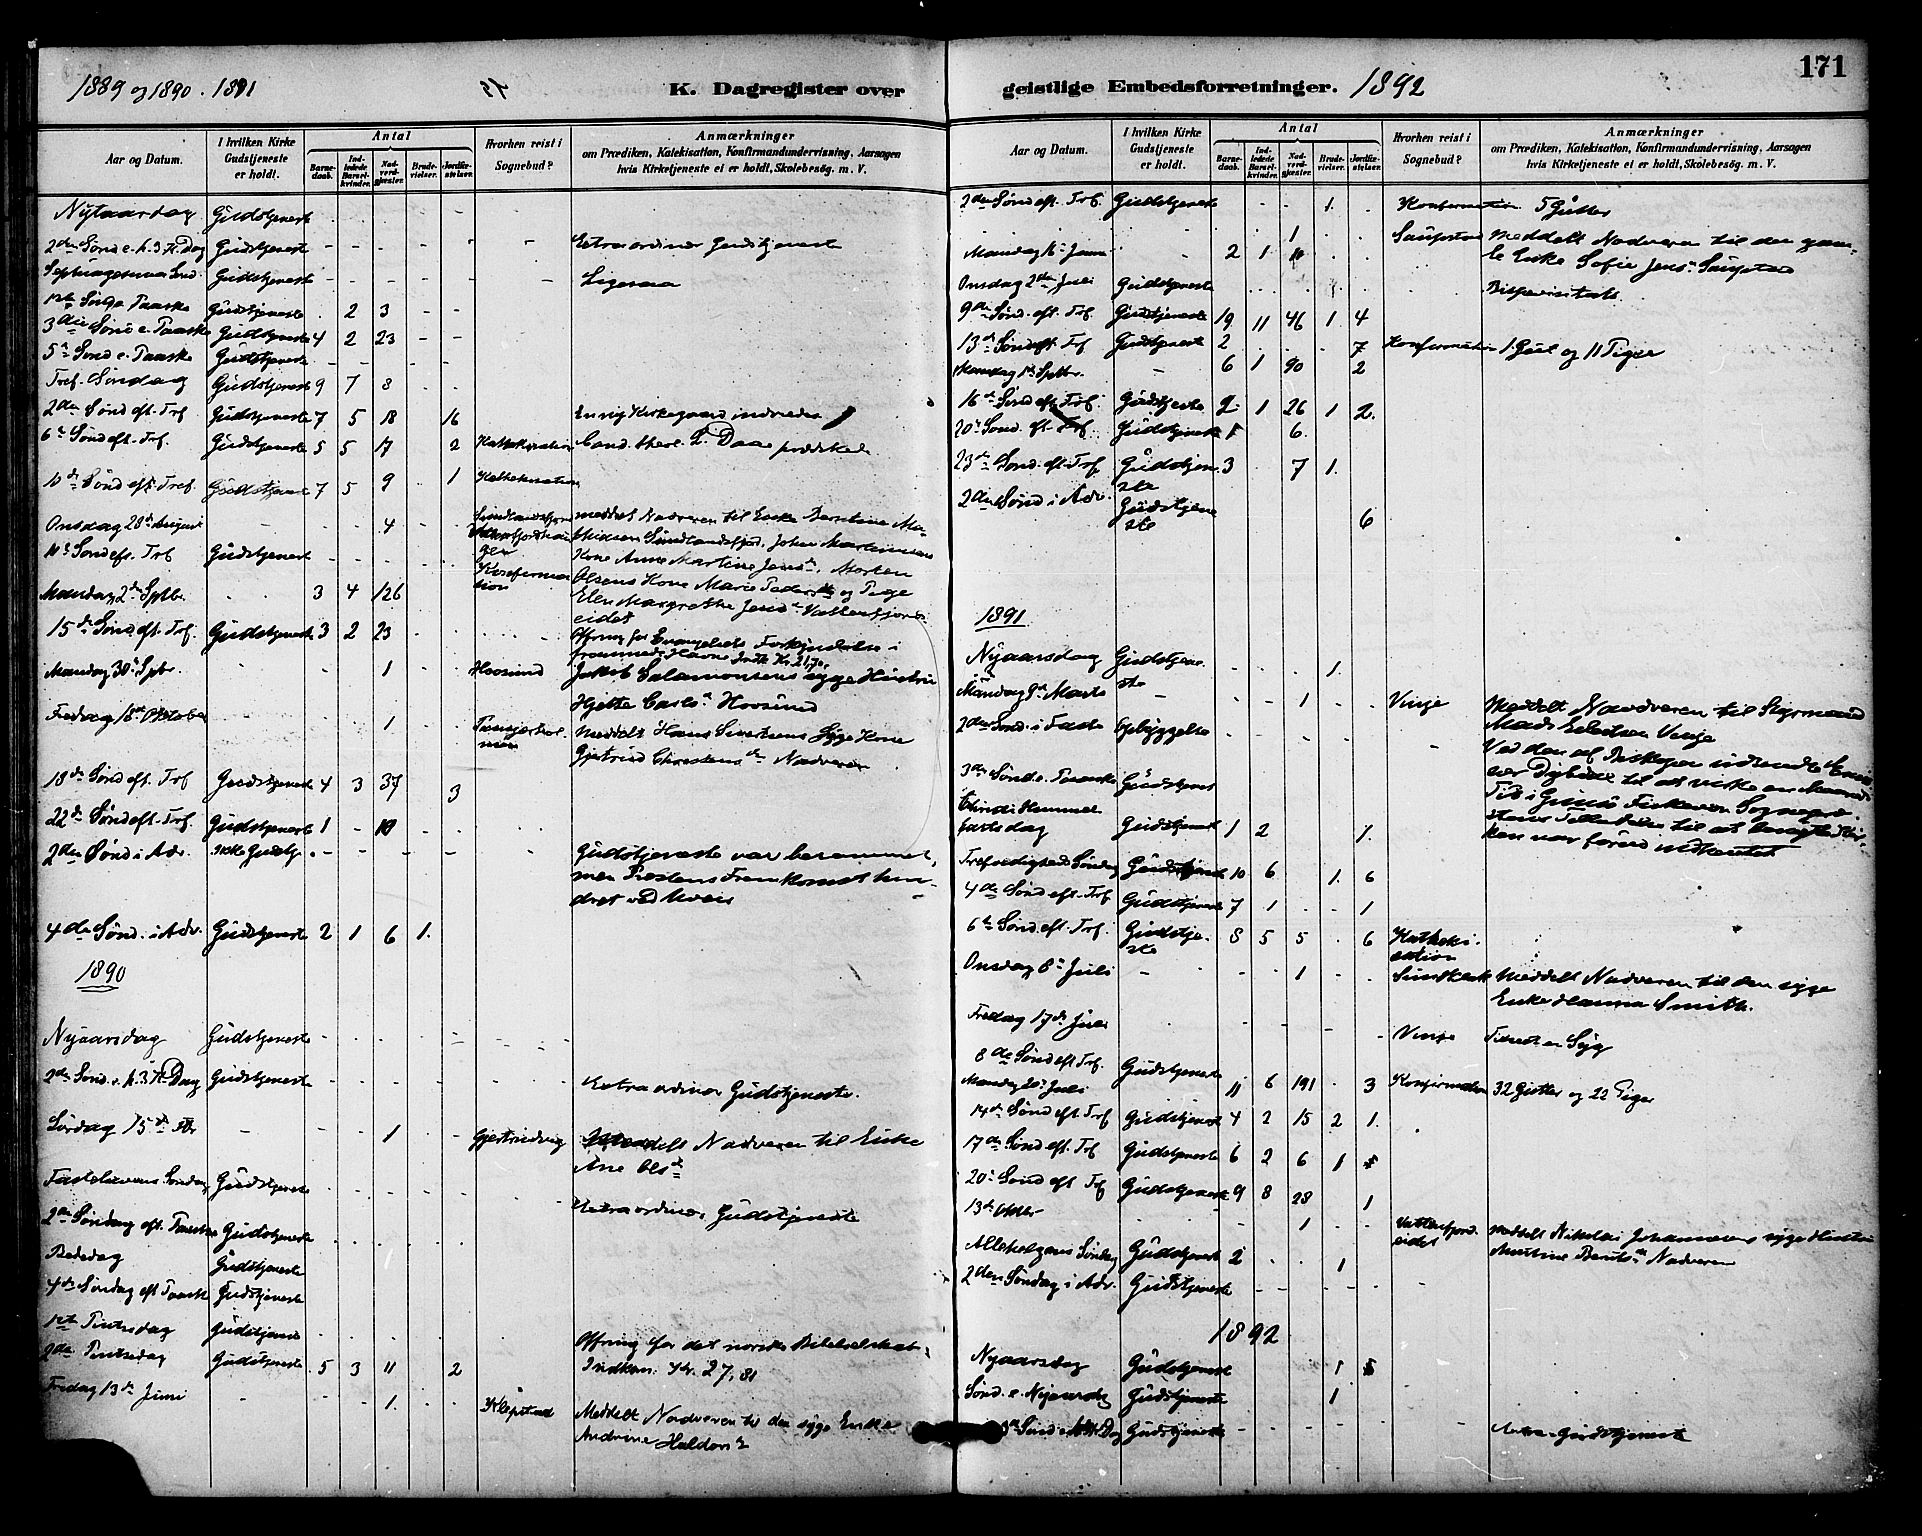 1889 og 1890 . 1891
K. Dagregister over
Aar og Datum.
I hvilken Kirke Gudstjeneste er holdt.
Antal
Barnedaab.
Indledede Barselkvinder.
Nadverdgjæster.
Brudevielser.
Jordfæstelser.
Hvorhen reist i Sognebud?
Anmærkninger
om Prædiken, Katekisation, Konfirmandundervisning, Aarsagen
hvis Kirketjeneste ei er holdt, Skolebesøg. m. V.
Nytaarsdag Gudstjeneste
2den Sønd e. h. 3 K. Dag Gudstjeneste Extraordinær Gudstjeneste
Septuagesima Sønd. Gudstjeneste Ligesaa
1ste Sønd e Paaske Gudstjeneste 2 3
3die Sønd e. Paaske Gudstjeneste 4 2 23
5te Sønd e. Paaske Gudstjeneste
Tref. Søndag Gudstjeneste 9 7 8
2den Sønd eft. Tref Gudstjeneste 7 5 18 16 En ny Kirkegaard indviedes
6te Sønd eft. Tref. Gudstjeneste 5 5 17 2 Kathekisation Cand. theol. L. Daae prædikede
10de Sønd eft. Tref. Gudstjeneste 7 5 9 1 Kathekisation
Onsdag 28de August 4 meddelt Nadveren til Enke Berntine Ma-
Sønd eft. Tref Gudstjeneste Kone Anne Martine Jensd. Morten
Konfirmation Olsens Kone Marie Pedersd og Pige
Mandag 2den Septbr. 3 4 126 Elen Margrethe Jensd Vatterfjord-
eidet
15de Sønd eft. Tref. Gudstjeneste 3 2 23 Offring for Evangeliets Forkyndelse i
fremmede Havne Indk Kr. 21,70.
Mandag 30te Septbr. 1 Hovsund Jakob Salamonsens syge Hustru
Hovsund
Fredag 18de Oktober 1 meddelt Hans Sivertsens syge Kone
Gjertrud Christensd. Nadveren
18de Sønd eft. Tref Gudstjeneste 4 3 37 3
22de Sønd eft. Tref. Gudstjeneste 1 - 10
2den Sønd i Adv. ikke Gudstj. Gudstjeneste var berammet,
men Præstens Fremkomst hin-
dret ved Uveir
4de Sønd. i Adv. Gudstjeneste 2 1 6 1.
1890
Nyaarsdag Gudstjeneste
2den Sønd. e. h. 3 K. Dag Gudstjeneste Extraordinær Gudstjeneste.
Lørdag 15de 1 Gjertrudvig Meddelt Nadveren til Enke
Ane Olsd
Fastelavens Søndag Gudstjeneste Extraordinær Gudstjeneste
2den Søndag eft. Paaske Gudstjeneste
Bededag Gudstjeneste
4de Søndag eft Paaske Gudstjeneste
1ste Pintsedag Gudstjeneste
2den Pintsedag Gudstjeneste 5 3 11 2 Offring for det norske Bibelselskab.
Indkom: Kr. 27,81
Fredag 13de Juni 1. Klepstad Meddelt Nadveren til den syge Enke
Andrine
geistlige Embedsforretninger. 1892
171
Aar og Datum.
I hvilken Kirke Gudstjeneste er holdt.
Antal
Barnedaab.
Indledede Barselkvinder.
Nadverdgjæster.
Brudevielser.
Jordfæstelser.
Hvorhen reist i Sognebud?
Anmærkninger
om Prædiken, Katekisation, Konfirmandundervisning, Aarsagen
hvis Kirketjeneste ei er holdt, Skolebesøg. m. V.
2den Sønd eft. Tref. Gudstjeneste 1. Konfirmation 5 Gutter
1 Saupstad meddelt Nadveren til den gam-
Mandag 16de Juni 2 1 le Enke Sofie Jensd. Saupstad
Onsdag 2den Juli Gudstjeneste Bispevisitats
9de Sønd. eft. Tref Gudstjeneste 19 11 46 1. 4
13de Sønd eft. Tref Gudstjeneste 2 7 Konfirmation 1 Gut og 11 Piger
Mandag 1ste Septbr. 6 1 90 2
16de Sønd eft Tref. Gudstjeneste 2 1 26 1 2.
20de Sønd. eft. Tref Gudstjeneste 1 6.
23de Sønd. eft Tref Gudstjene- 3 7 1.
ste
2den Sønd i Adv. Gudstjene
ste 6
1891
Nyaarsdag Gudstjene- 1.
ste
Mandag 9de Marts 1 Vinje meddelt Nadveren til Styrmand
Mads Vinje
2den Sønd. i Faste Opbyggelse Ved den af Biskopen indsendte
til at virke en
3die Sønd e. Paaske Gudstjeneste Tid i Gimsø
Christi Himmel til at
fartsdag Gudstjeneste 1 2 1. ken var forud indhentet
Trefoldigheds Søndag Gudstjeneste 10 6 1. 6
4de Sønd eft. Tref Gudstjeneste 7 1 1
6te Sønd. eft. Tref. Gudstje- 8 5 5 6 Katheki-
ste sation
Onsdag 8de Juli 1 Sundklak Meddelt Nadveren til den syge
Enke Hanna Smith.
Fredag 17de Juli Vinje
8de Sønd eft Tref. Gudstjeneste
Mandag 20de Juli 11 6 191 3 Konfirmation 32 Gutter og 22 Piger
14de Sønd eft Tref Gudstjeneste 4 2 15 2 1.
17de Sønd eft. Tref Gudstjeneste 6 2 6 1
20de Sønd eft Tref Gudstjeneste 9 8 28 1
13de Oktbr 1 Vatterfjord- meddelt Nikolai Johannesens syge Hustru
eidet Martine Berntsd. Nadveren
Allehelgens Søndag Gudstjeneste 2 1
2den Søndag i Adv. Gudstjeneste
1892
Nyaarsdag Gudstjeneste 1
Sønd. e. Nyaarsdag Gudstjeneste 1
Gudstjeneste Extra-Gudstjeneste